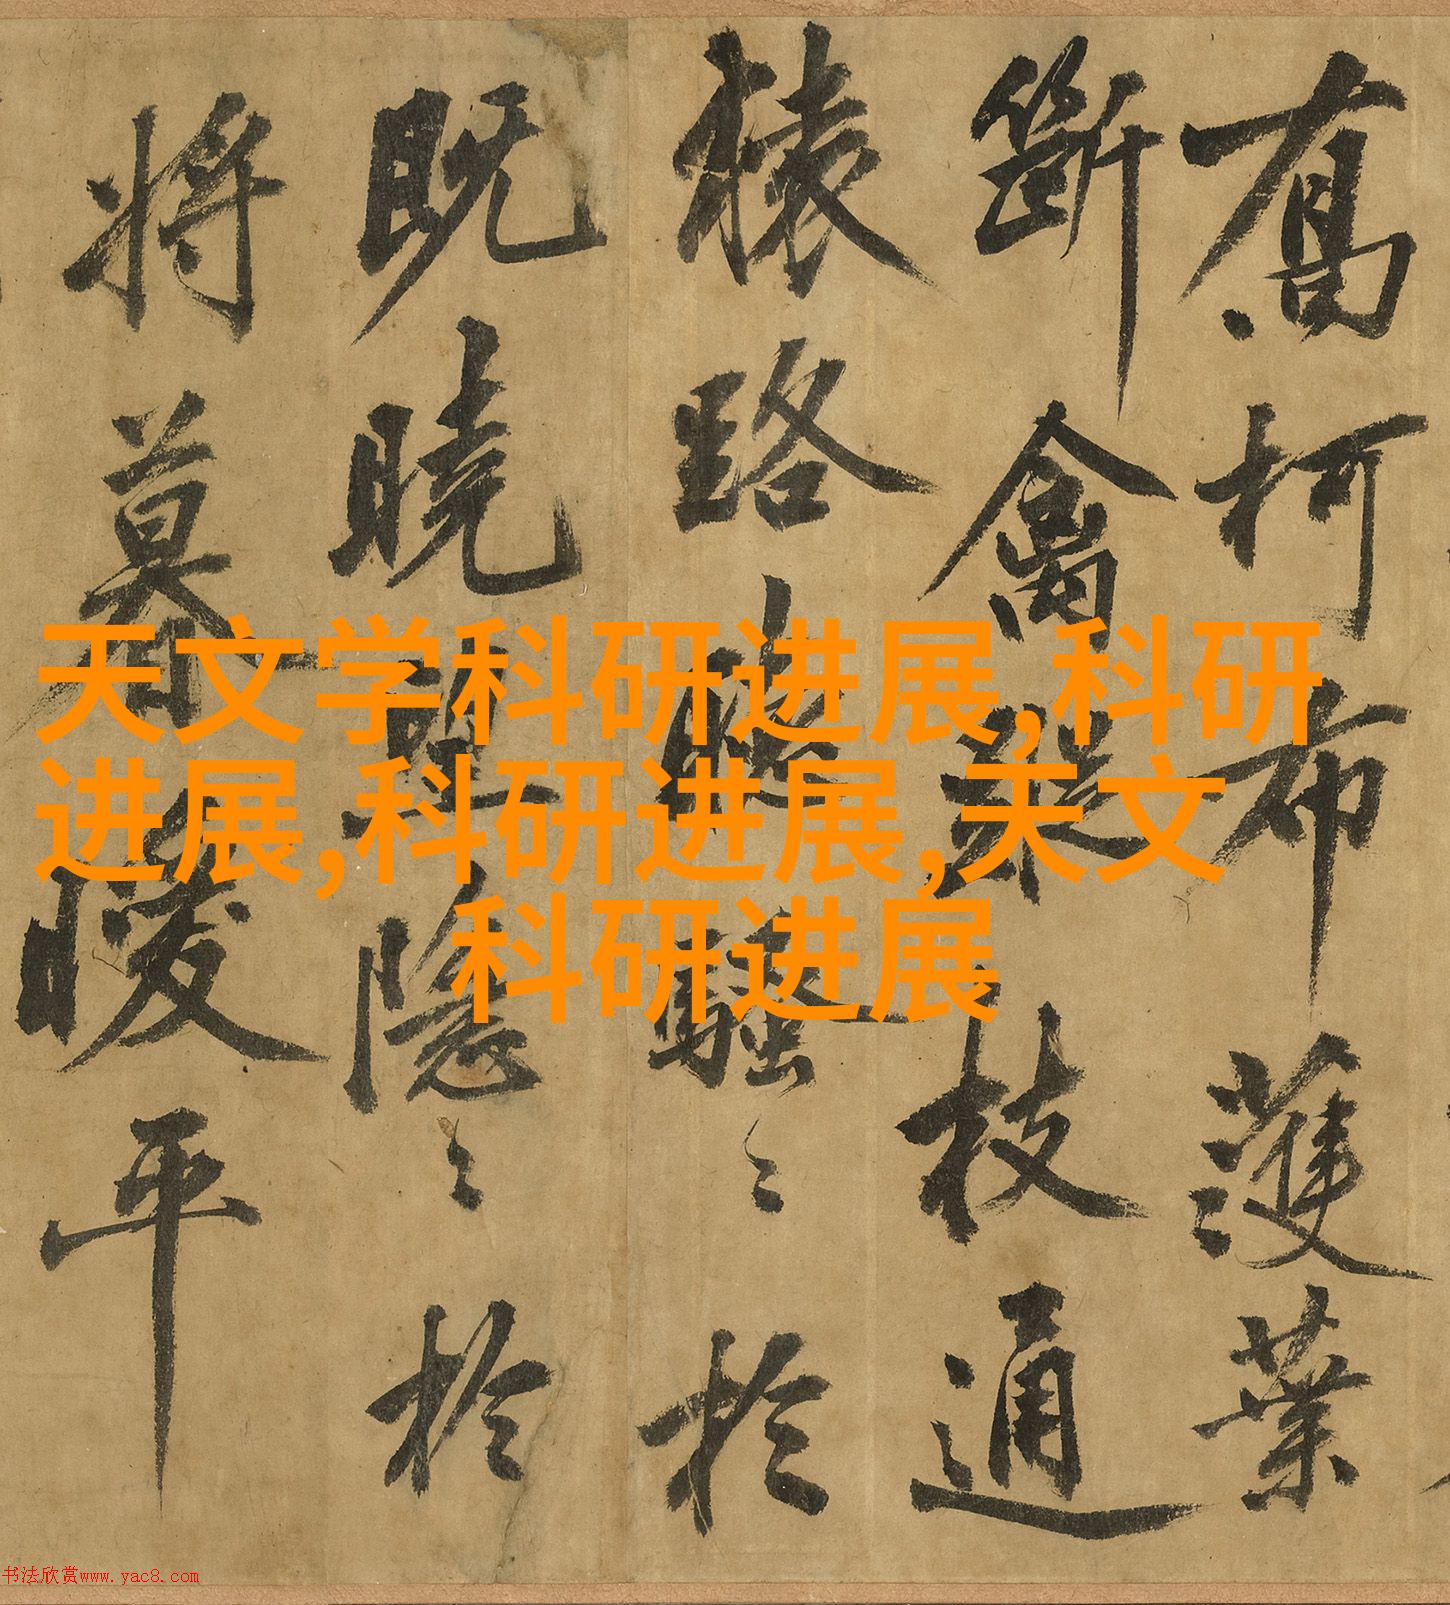 天文学科研进展,科研
进展,科研进展,天文
科研进展
柯布濩葉
斷禽巢枝通
猿路聽騷々於
既曉望隱々於
將暮曖平
书法欣赏www.yac8.com